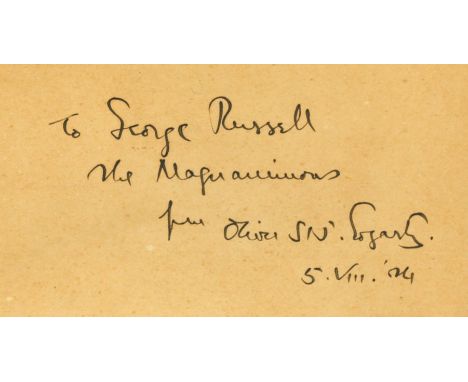 To George Russell
the Magnanimous
from Oliver St J. Gogarty.
5. VIII. '24